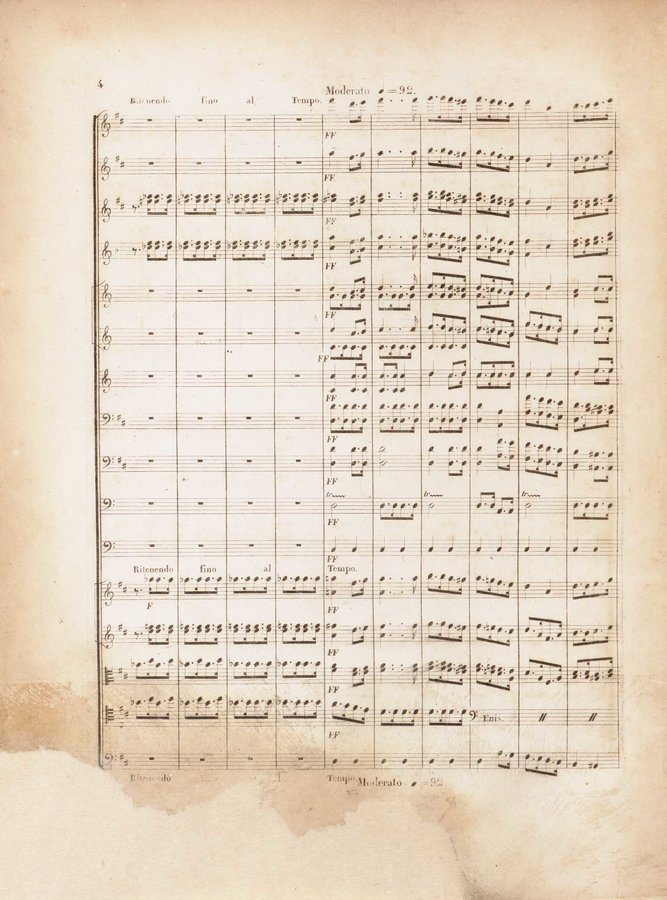 4
Moderato ♩=92.
Ritenendo fino al Tempo.
FF
FF
FF
FF
FF
FF
FF
FF
FF
tr tr tr
FF
FF
Ritenendo fino al Tempo.
F FF
FF
FF
Unis.
FF
Ritenendo
Tempo.
Moderato ♩=92